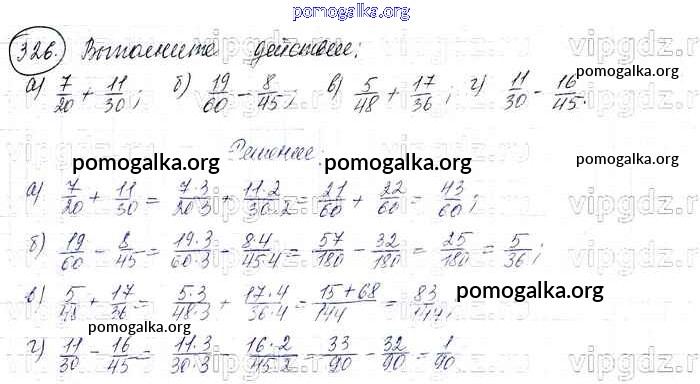 pomogalka.org
326. Выполните действие:
а) 7/20 + 11/30; б) 19/60 - 8/45; в) 5/48 + 17/36; г) 11/30 - 16/45.
pomogalka.org
Решение:
pomogalka.org pomogalka.org pomogalka.org
а) 7/20 + 11/30 = 7·3/20·3 + 11·2/30·2 = 21/60 + 22/60 = 43/60;
б) 19/60 - 8/45 = 19·3/60·3 - 8·4/45·4 = 57/180 - 32/180 = 25/180 = 5/36;
в) 5/48 + 17/36 = 5·3/48·3 + 17·4/36·4 = 15+68/144 = 83/144;
pomogalka.org
pomogalka.org
г) 11/30 - 16/45 = 11·3/30·3 - 16·2/45·2 = 33/90 - 32/90 = 1/90